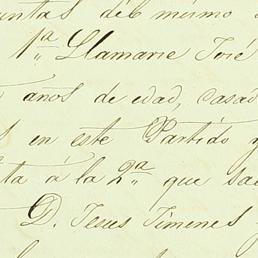 untas del mismo
1ª Llamarse José
años de edad, casad
en este Partido y
ta á la 2ª que sa
D. Jesus Jimenes